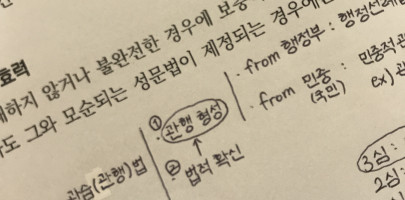 효력
하지 않거나 불완전한 경우에 보충
도 그와 모순되는 성문법이 제정되는 경우에는
· from 행정부 : 행정선례
· from 민중 : 민중적 관
(국민) ex) 관
① 관행 형성
↑
② 법적 확신
관습(관행)법
3심 :
2심 :